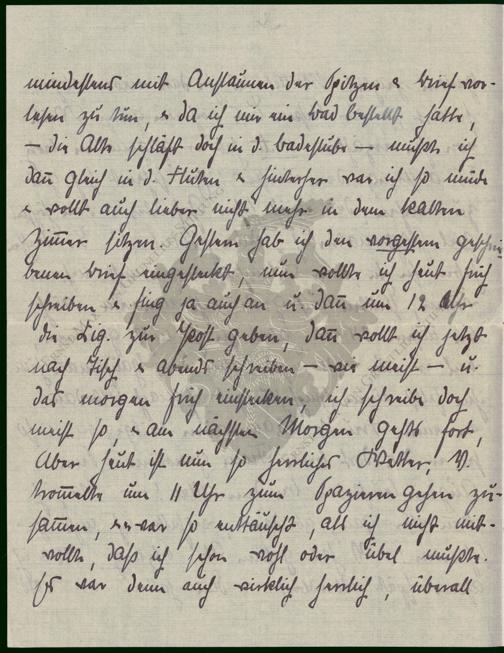 mindestens mit Anstaunen der Spitzen & Brief vor-
lesen zu tun, & da ich mir ein Bad bestellt hatte,
– die Alte schläft doch in d. Badestube – mußte ich
dan̄ gleich in d. Fluten & hinterher war ich so müde
& wollt auch lieber nicht mehr in dem kalten
Zimmer sitzen. Gestern hab ich den vorgestern geschrie-
benen Brief eingesteckt, nun wollte ich heut früh
schreiben & fing ja auch an u. dan̄ um 12 Uhr
die zur Post geben, dan̄ wollt ich jetzt
nach Tisch & abends schreiben – wie meist – u.
das morgen früh einstecken, ich schreibe doch
meist so, & am nächsten Morgen gehts fort,
Aber heut ist nun so herrliches Wetter, V.
trom̄elte um 11 Uhr zum Spazierengehen zu-
sam̄en, & war so enttäuscht, als ich nicht mit-
wollte, daß ich schon wohl oder übel mußte.
Es war denn auch wirklich herrlich, überall